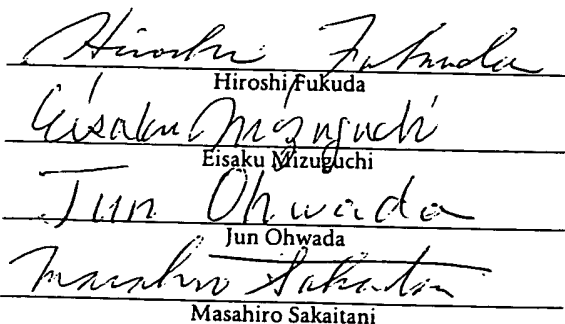 Hiroshi Fukuda
Hiroshi Fukuda
Eisaku Mizuguchi
Eisaku Mizuguchi
Jun Ohwada
Jun Ohwada
Masahiro Sakaitani
Masahiro Sakaitani